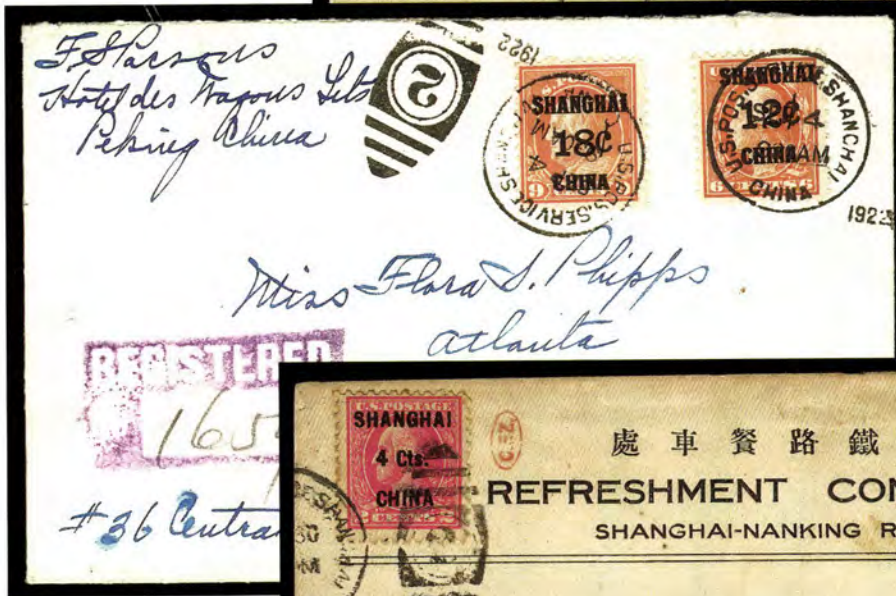 F. S. Parsons
Hotel des Wagons Lits
Peking China
2
1922
U.S. POSTAGE
SHANGHAI
18¢
CHINA
9
U.S. POS. SERVICE SHANGHAI
SHANGHAI
12¢
CHINA
6
U.S. POS. SHANGHAI
4
AM
CHINA
1922
Miss Flora S. Phipps
Atlanta
REGISTERED
165
#36 Centra
U.S. POSTAGE
SHANGHAI
4 Cts.
CHINA
2 CENTS 2
C.E.Z.
處車餐路鐵
REFRESHMENT CON
SHANGHAI-NANKING R
SHAN
30
M